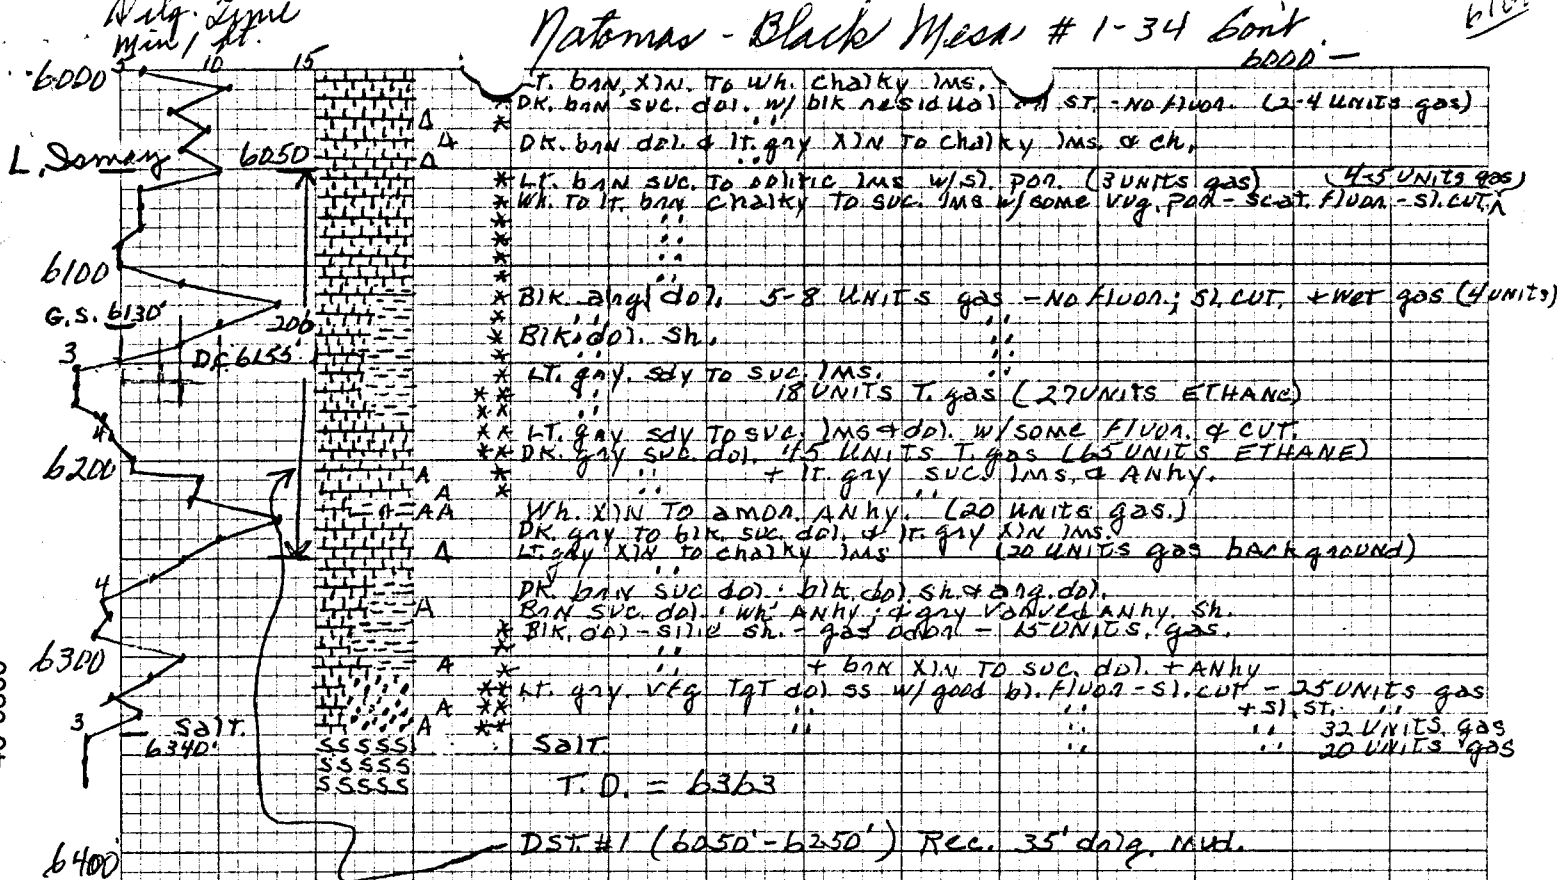 Drlg. Time
Min/ft.
Natomas - Black Mesa # 1-34 Cont.
6000 -
5 10 15
6000
LT. brn, XlN. To Wh. Chalky lms.
DK. brn suc. dol. w/ blk residual oil ST. - No fluor. (2-4 UNITS gas)
DK. brn dol. & lt. gry XlN To Chalky lms. & ch.
L. Ismay 6050
LT. brn suc. To oolitic lms w/sl. por. (3 UNITS gas) (4-5 UNITS gas)
Wh. To lt. brn chalky to suc. lms w/some vug. por - scat. fluor - sl. cut.
6100
Blk. arg dol. 5-8 UNITS gas - No fluor.; sl. cut. + Wet gas (4 UNITS)
G.S. 6130'
200'
Blk. dol. sh.
3 D.C. 6155'
LT. gry. sdy To suc. lms.
18 UNITS T. gas (27 UNITS ETHANE)
4
LT. gry sdy To suc. lms & dol. w/some fluor. & cut.
6200
DK. gry suc. dol. 45 UNITS T. gas (65 UNITS ETHANE)
+ lt. gry suc. lms, & ANhy.
Wh. XlN To amor. ANhy. (20 UNITS gas.)
DK. gry to blk. suc. dol. & lt. gry XlN lms.
LT. gry XlN to chalky lms (20 UNITS gas background)
4
DK. brn suc dol. blk. dol. sh. & arg. dol.
Brn suc. dol. wh. ANhy; & gry Varved ANhy sh.
Blk. dol - silic sh. - gas odor - 15 UNITS gas.
6300
+ brn XlN To suc. dol. + ANhy
LT. gry. vfg TgT dol ss w/ good bl. fluor - sl. cut - 25 UNITS gas
+ sl. ST.
3 Salt.
32 UNITS gas
6340'
Salt.
20 UNITS gas
T. D. = 6363
DST. #1 (6050'-6250') Rec. 35' drlg. mud.
6400'